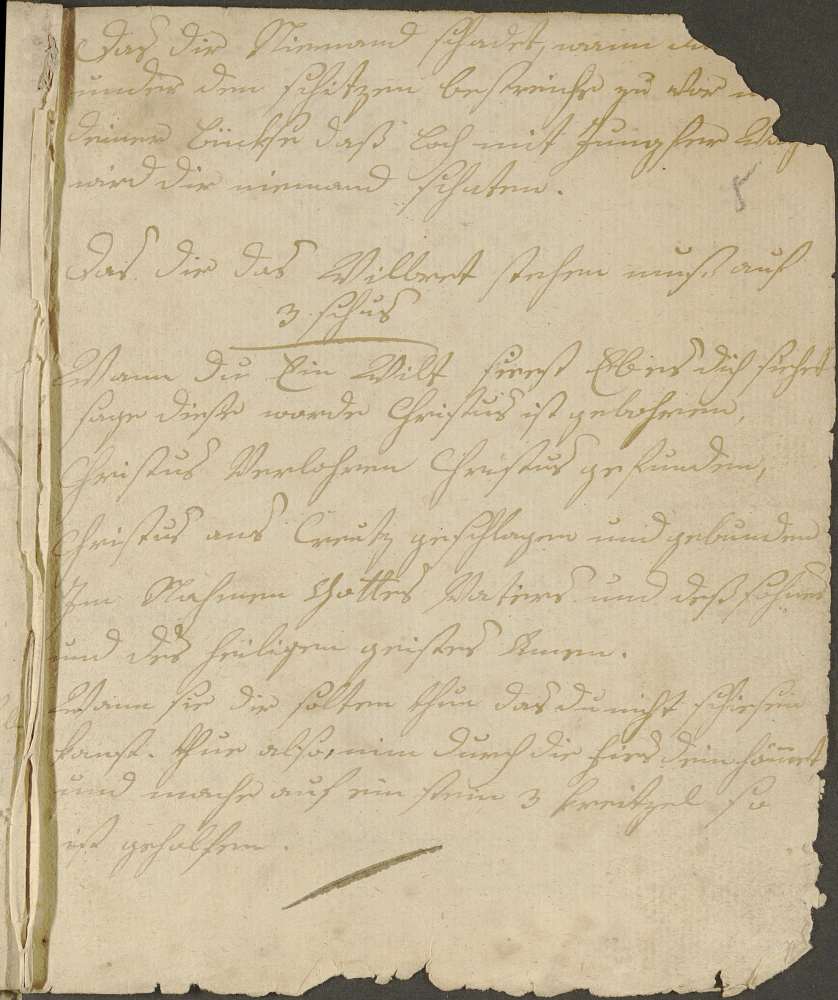 Das dir Niemand schadet, wann du
under den schitzen bestreiche zu vor
deiner bückse daß loch mit Jungfer
wird dir niemand schaten.
8
Das dir das Wilbret stehen muß auf
3 schus
Wann du Ein Wilt siest Ebes dich siehet
sage diese worde Christus ist gebohren,
Christus Verlohren Christus gefunden,
Christus ans Creutz geschlagen und gebunden
Im Nahmen Gottes Vaters und deß sohnes
und des heiligen geistes Amen.
Wann sie dir solten thun das du nicht schiesen
kanst. thue also, nim durch die fies dein hämet
und mache auf ein stein 3 kreitzel so
ist geholfen.